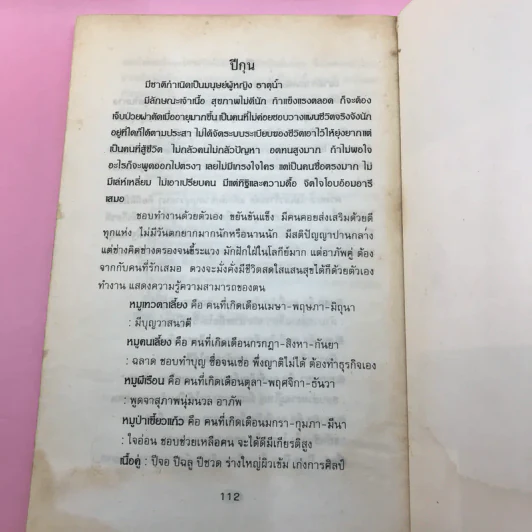 ปีกุน
มีชาติกำเนิดเป็นมนุษย์ผู้หญิง ธาตุน้ำ
มีลักษณะเจ้าเนื้อ สุขภาพไม่ดีนัก ถ้าแข็งแรงตลอด ก็จะต้อง
เจ็บป่วยผ่าตัดเมื่ออายุมากขึ้น เป็นคนที่ไม่ค่อยชอบวางแผนชีวิตจริงจังนัก
อยู่ที่ใดก็ได้ตามประสา ไม่ได้จัดระบบระเบียบของชีวิตเอาไว้ให้ยุ่งยากแต่
เป็นคนที่สู้ชีวิต ไม่กลัวคนไม่กลัวปัญหา อดทนสูงมาก ถ้าไม่พอใจ
อะไรก็จะพูดออกไปตรงๆ เลยไม่มีเกรงใจใคร แต่เป็นคนซื่อตรงมาก ไม่
มีเล่ห์เหลี่ยม ไม่เอาเปรียบคน มีแต่ทิฐิและความดื้อ จิตใจโอบอ้อมอารี
เสมอ
ชอบทำงานด้วยตัวเอง ขยันขันแข็ง มีคนคอยส่งเสริมด้วยดี
ทุกแห่ง ไม่มีวันตกยากมากนักหรือนานนัก มีสติปัญญาปานกลาง
แต่ช่างคิดช่างตรองจนขี้ระแวง มักฝักใฝ่ในโลกีย์มาก แต่อาภัพคู่ ต้อง
จากกับคนที่รักเสมอ ดวงจะมั่งคั่งมีชีวิตสดใสแสนสุขได้ก็ด้วยตัวเอง
ทำงาน แสดงความรู้ความสามารถของตน
หมูเทวดาเลี้ยง คือ คนที่เกิดเดือนเมษา-พฤษภา-มิถุนา
: มีบุญวาสนาดี
หมูคนเลี้ยง คือ คนที่เกิดเดือนกรกฎา-สิงหา-กันยา
: ฉลาด ชอบทำบุญ ซื่อจนเซ่อ พึ่งญาติไม่ได้ ต้องทำธุรกิจเอง
หมูผีเรือน คือ คนที่เกิดเดือนตุลา-พฤศจิกา-ธันวา
: พูดจาสุภาพนุ่มนวล อาภัพ
หมูป่าเขี้ยวแก้ว คือ คนที่เกิดเดือนมกรา-กุมภา-มีนา
: ใจอ่อน ชอบช่วยเหลือคน จะได้ดีมีเกียรติสูง
เนื้อคู่ : ปีจอ ปีฉลู ปีชวด ร่างใหญ่ผิวเข้ม เก่งการศิลป์
112